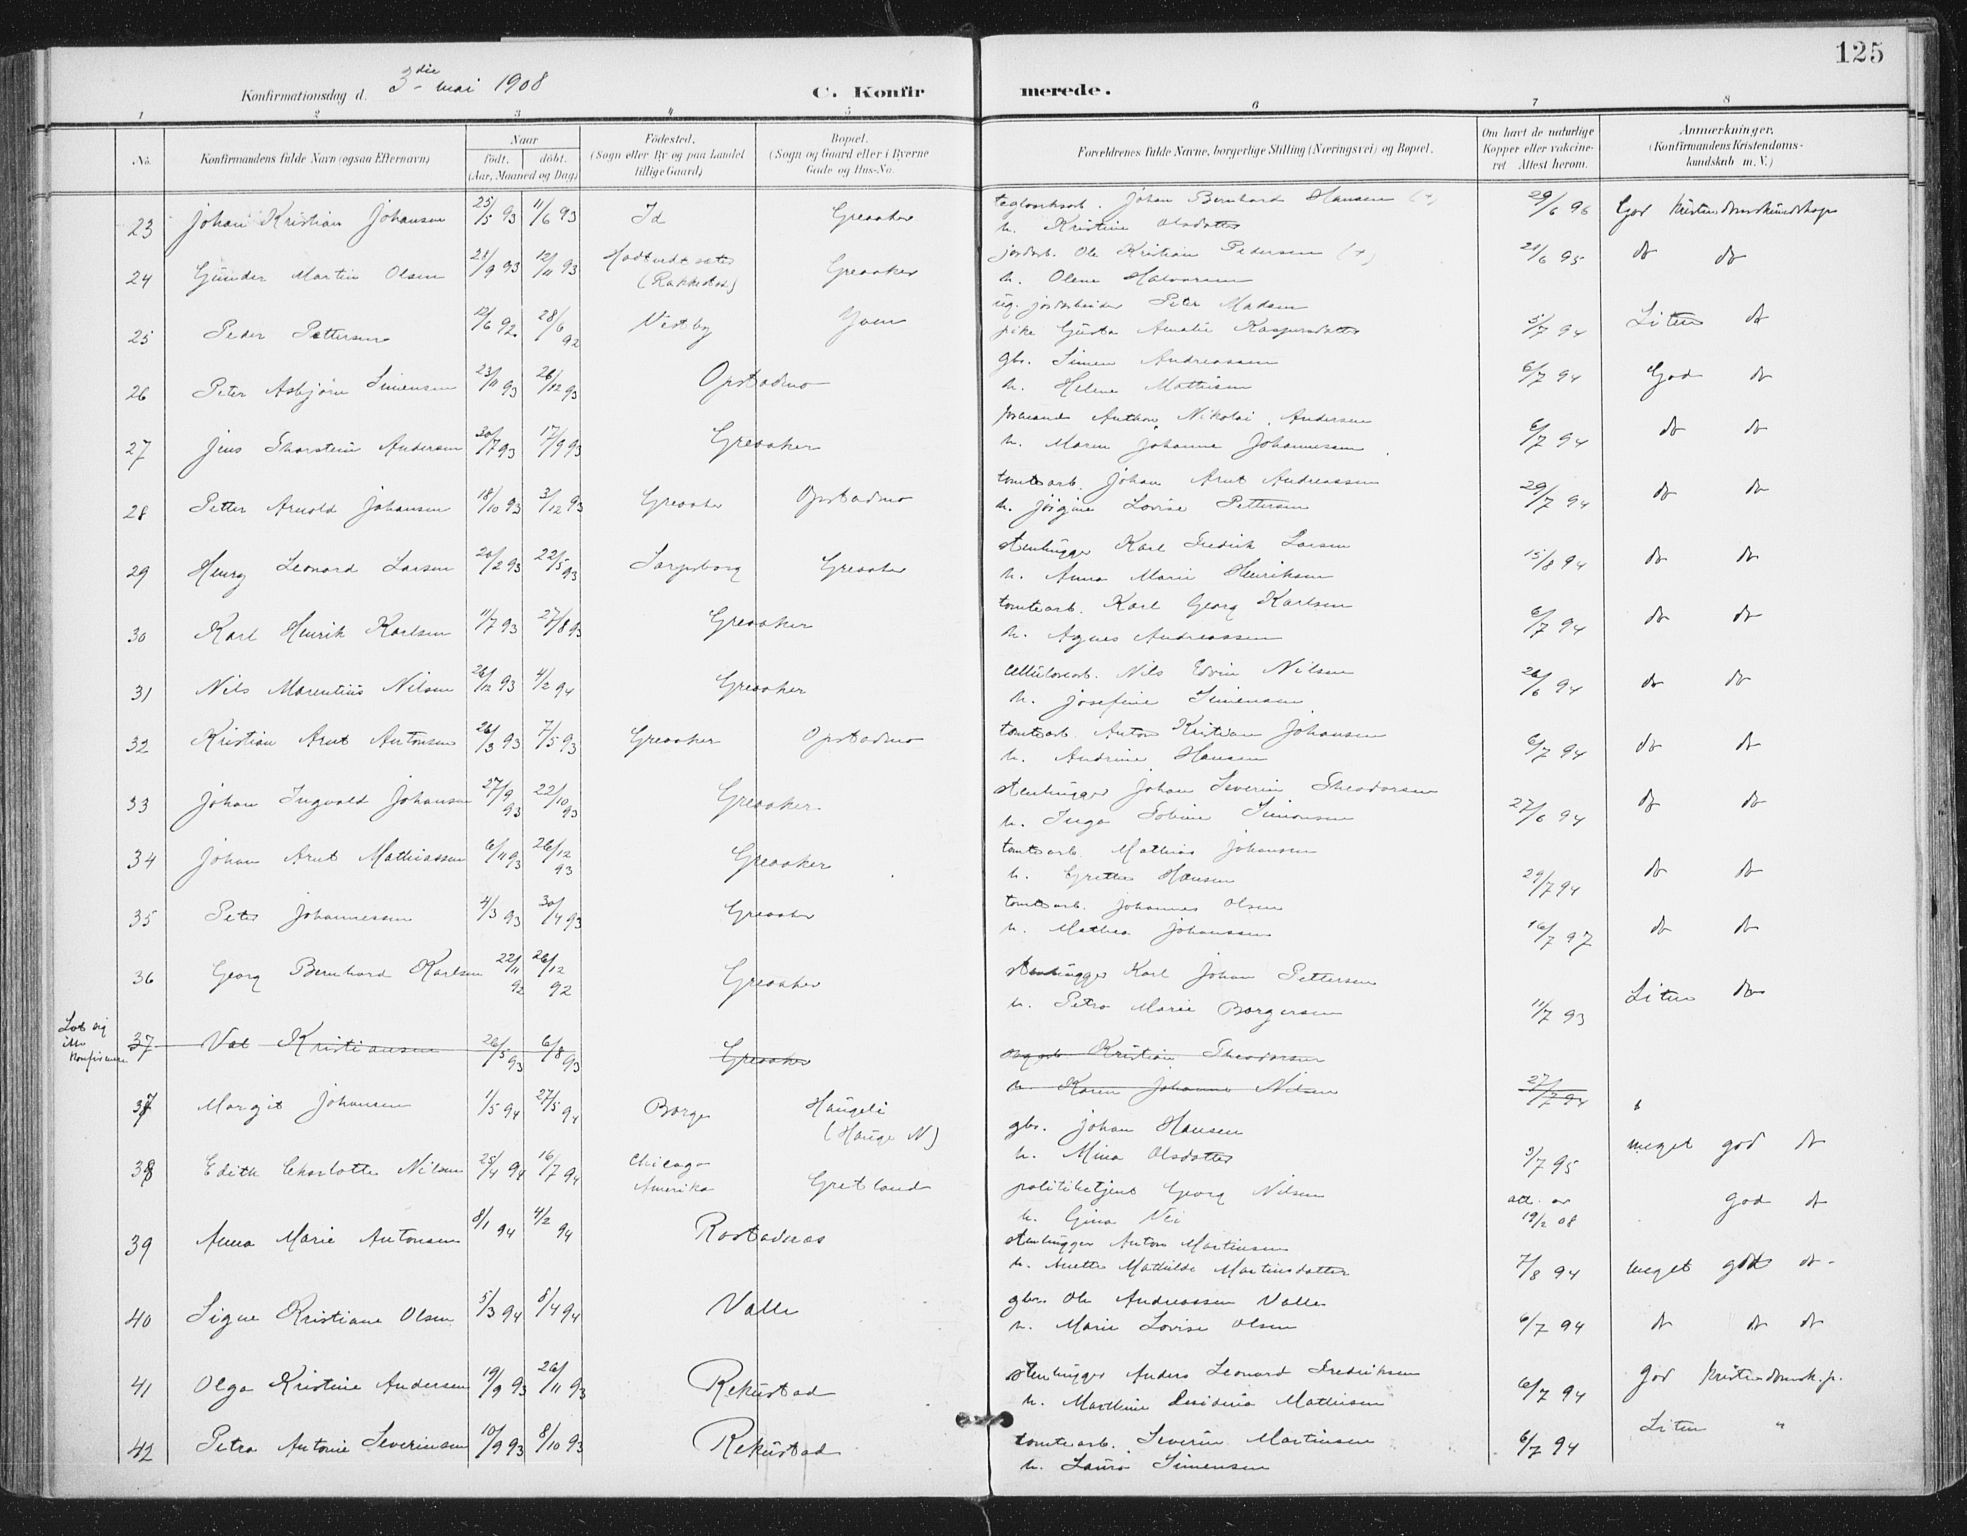 125
Konfirmationsdag d. 3die mai 1908
C. Konfirmerede.
1 2 3 4 5 6 7 8
No. Konfirmandens fulde Navn (ogsaa Efternavn) Naar født, døbt. (Aar, Maaned og Dag) Fødested. (Sogn eller By og paa Landet tillige Gaard) Bopæl. (Sogn og Gaard eller i Byerne Gade og Hus-No. Forældrenes fulde Navne, borgerlige Stilling (Næringsvei) og Bopæl. Om havt de naturlige Kopper eller vakcineret Attest herom. Anmærkninger. (Konfirmandens Kristendomskundskab m. V.)
23 Johan Kristian Johansen 25/5 93 11/6 93 Id Greaaker Johan Bernhard Hansen (+) 29/6 96 God Kristendomskundskap
h. Kristine Olsdatter
24 Gunder Martin Olsen 21/9 93 12/11 93 (Rakkestad) Greaaker jordarb. Ole Kristian Pedersen (+) 21/6 95 do do
h. Olene Halvorsen
25 Peder Pettersen 12/6 92 28/6 92 Vestby ug. jordarbeider Peter Madsen 5/7 94 Liten do
pike Gusta Amalie Kaspersdatter
26 Peter Asbjørn Simensen 23/11 93 26/12 93 Opstadmo gbr. Simen Andreassen 6/7 94 God do
h. Helene Mathisen
27 Jens Thorstein Andersen 30/7 93 17/9 93 Greaaker formand Anthon Nikolai Andersen 6/7 94 do do
h. Maren Johanne Johannessen
28 Petter Arnold Johansen 18/10 93 3/12 93 Greaaker Opstadmo tomtearb. Johan Arnt Andreassen 29/7 94 do do
h. Jørgine Lovise Pettersen
29 Henry Leonard Larsen 20/2 93 22/5 93 Sarpsborg Greaaker stenhugger Karl Fredrik Larsen 15/8 94 do do
h. Anna Marie Henriksen
30 Karl Henrik Karlsen 11/7 93 27/8 93 Greaaker tomtearb. Karl Georg Karlsen 6/7 94 do do
h. Agnes Andreassen
31 Nils Marentius Nilsen 26/12 93 4/2 94 Greaaker cellulosearb. Nils Edvin Nilsen 26/6 94 do do
h. Josefine Simensen
32 Kristian Arnt Antonsen 26/3 93 7/5 93 Greaaker Opstadmo tomtearb. Anton Kristian Johansen 6/7 94 do do
h. Andrine Hansen
33 Johan Ingvald Johansen 27/9 93 22/10 93 Greaaker stenhugger Johan Severin Theodorsen 27/6 94 do do
h. Inga Sobine Simonsen
34 Johan Arnt Mathiassen 6/11 93 26/12 93 Greaaker tomtearb. Mathias Johansen 29/7 94 do do
h. Grethe Hansen
35 Peter Johannessen 4/3 93 30/4 93 Greaaker tomtearb. Johannes Olsen 16/7 97 do do
h. Mathea Johanssen
36 Georg Bernhard Karlsen 22/11 92 26/12 92 Greaaker stenhugger Karl Johan Pettersen 11/7 93 Liten do
h. Petra Marie Borgersen
Lot sig ikke konfirmere
37 Val Kristiansen 26/5 93 6/8 93 Greaaker Kristian Theodorsen 27/7 94
h. Karen Johanne Nilsen
37 Margit Johansen 1/5 94 27/5 94 Borge Haugeli (Hauge N) gbr. Johan Hansen 3/7 95 meget god do
h. Mina Olsdatter
38 Edith Charlotte Nilsen 25/4 94 16/7 94 Chicago Amerika Gretland politibetjent Georg Nilsen att. av 19/2 08 god do
h. Gina Nei
39 Anna Marie Antonsen 8/1 94 4/2 94 Rostadnes stenhugger Anton Martinsen 7/8 94 meget god do
h. Anette Mathilde Martinsdatter
40 Signe Kristiane Olsen 5/3 94 8/4 94 Valle gbr. Ole Andreassen Valle 6/7 94 do do do
h. Marie Lovise Olsen
41 Olga Kristine Andersen 19/9 93 26/11 93 Rekustad stenhugger Anders Leonard Fredriksen 6/7 94 god Kristendomsk.p.
h. Mathine Desideria Mathisen
42 Petra Antonie Severinsen 10/9 93 8/10 93 Rekustad tomtearb. Severin Martinsen 6/7 94 Liten "
h. Laura Simensen